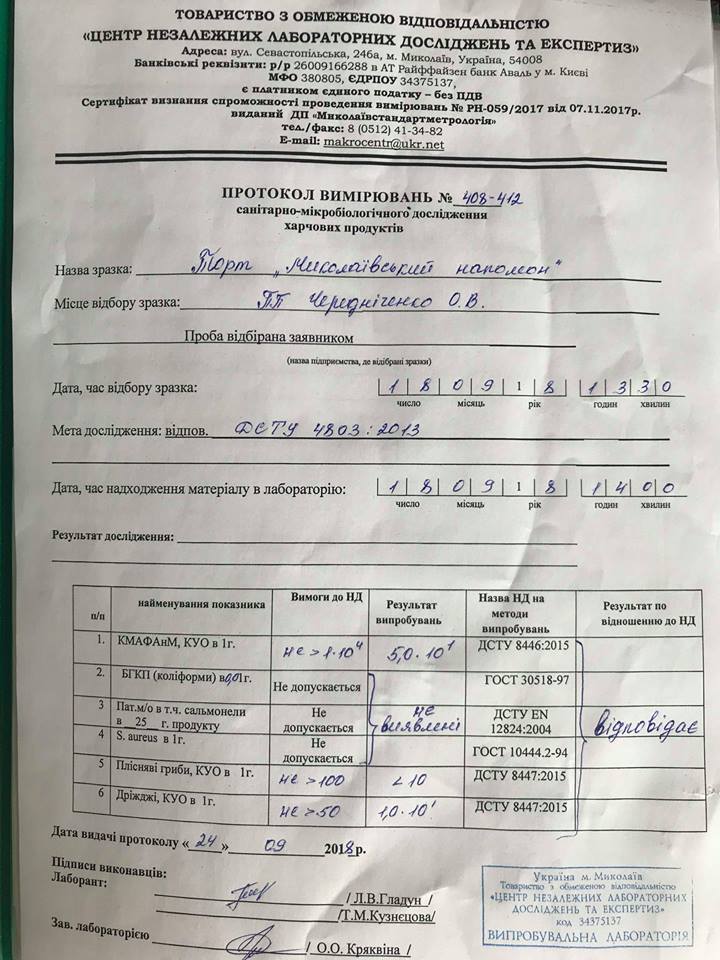 ТОВАРИСТВО З ОБМЕЖЕНОЮ ВІДПОВІДАЛЬНІСТЮ
«ЦЕНТР НЕЗАЛЕЖНИХ ЛАБОРАТОРНИХ ДОСЛІДЖЕНЬ ТА ЕКСПЕРТИЗ»
Адреса: вул. Севастопільська, 246а, м. Миколаїв, Україна, 54008
Банківські реквізити: р/р 26009166288 в АТ Райффайзен банк Аваль у м. Києві
МФО 380805, ЄДРПОУ 34375137,
є платником єдиного податку – без ПДВ
Сертифікат визнання спроможності проведення вимірювань № РН-059/2017 від 07.11.2017р.
виданий ДП «Миколаївстандартметрологія»
тел./факс: 8 (0512) 41-34-82
E-mail: makrocentr@ukr.net
ПРОТОКОЛ ВИМІРЮВАНЬ № 408-412
санітарно-мікробіологічного дослідження
харчових продуктів
Назва зразка: Торт „Миколаївський наполеон"
Місце відбору зразка: П.П Чередніченко О.В.
Проба відбірана заявником
(назва підприємства, де відібрані зразки)
Дата, час відбору зразка: 1 8 0 9 1 8 1 3 3 0
число місяць рік годин хвилин
Мета дослідження: відпов. ДСТУ 4803:2013
Дата, час надходження матеріалу в лабораторію: 1 8 0 9 1 8 1 4 0 0
число місяць рік годин хвилин
Результат дослідження:
п/п найменування показника Вимоги до НД Результат випробувань Назва НД на методи випробувань Результат по відношенню до НД
1. КМАФАнМ, КУО в 1г. не > 1·10⁴ 5,0·10¹ ДСТУ 8446:2015
2. БГКП (коліформи) в 0,01г. Не допускається ГОСТ 30518-97
3 Пат.м/о в т.ч. сальмонели в 25 г. продукту Не допускається не виявлені ДСТУ EN 12824:2004 відповідає
4 S. aureus в 1г. Не допускається ГОСТ 10444.2-94
5 Плісняві гриби, КУО в 1г. не >100 <10 ДСТУ 8447:2015
6 Дріжджі, КУО в 1г. не >50 1,0·10¹ ДСТУ 8447:2015
Дата видачі протоколу « 24 » 09 2018р.
Підписи виконавців:
Лаборант: / Л.В.Гладун /
/Т.М.Кузнєцова/
Зав. лабораторією / О.О. Кряквіна /
Україна м. Миколаїв
Товариство з обмеженою відповідальністю
«ЦЕНТР НЕЗАЛЕЖНИХ ЛАБОРАТОРНИХ
ДОСЛІДЖЕНЬ ТА ЕКСПЕРТИЗ»
код 34375137
ВИПРОБУВАЛЬНА ЛАБОРАТОРІЯ